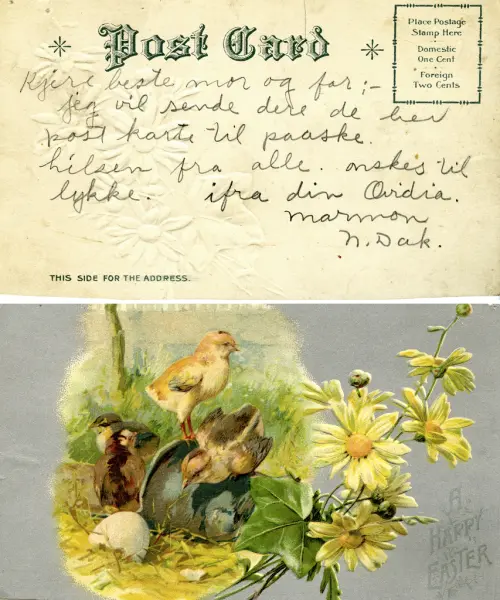 Post Card
Place Postage
Stamp Here
Domestic
One Cent
Foreign
Two Cents
Kjere beste mor og far;-
jeg vil sende dere de her
post karte til paaske.
hilsen fra alle. onskes til
lykke. ifra din Ovidia.
marmon
N. Dak.
THIS SIDE FOR THE ADDRESS.
A
HAPPY
EASTER